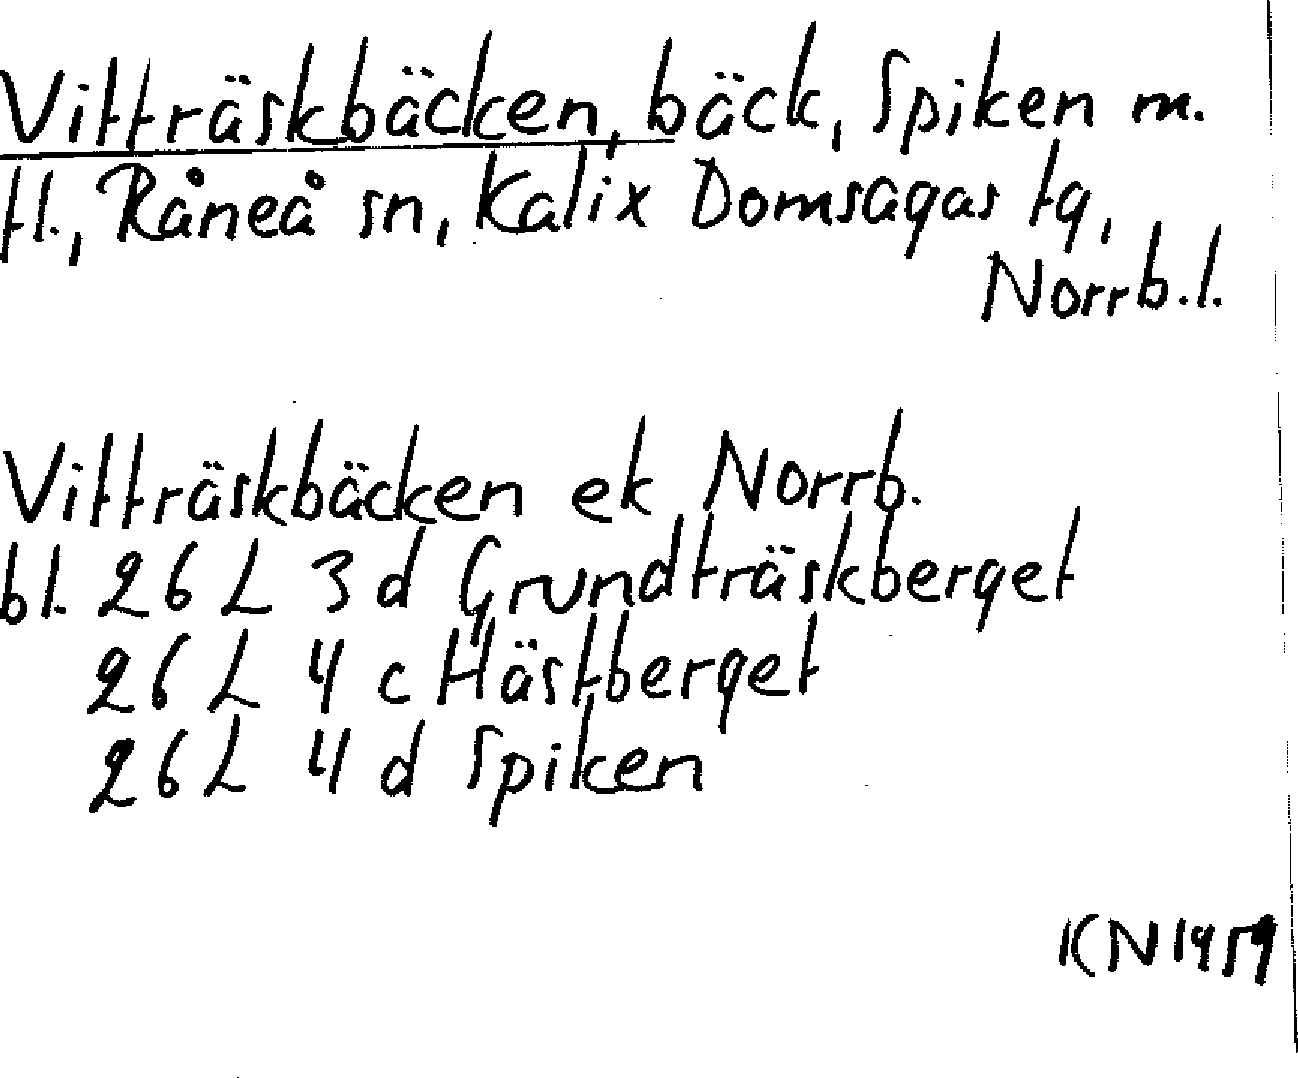 Vitträskbäcken, bäck, Spiken m.
fl., Råneå sn, Kalix Domsagas tg,
Norrb.l.
Vitträskbäcken ek Norrb.
bl. 26 L 3 d Grundträskberget
26 L 4 c Hästberget
26 L 4 d Spiken
KN 1959